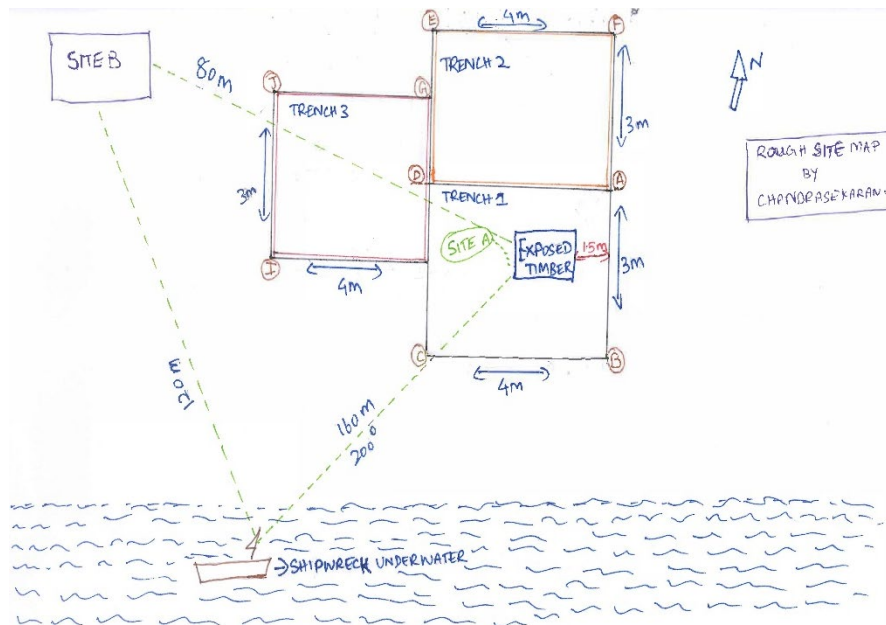 SITE B
80m
E
4m
F
N
TRENCH 2
J
G
TRENCH 3
3m
ROUGH SITE MAP
BY
CHANDRASEKARAN
3m
D
A
TRENCH 1
SITE A
EXPOSED
TIMBER
1.5m
3m
I
4m
C
B
4m
120m
160m
200°
SHIPWRECK UNDERWATER